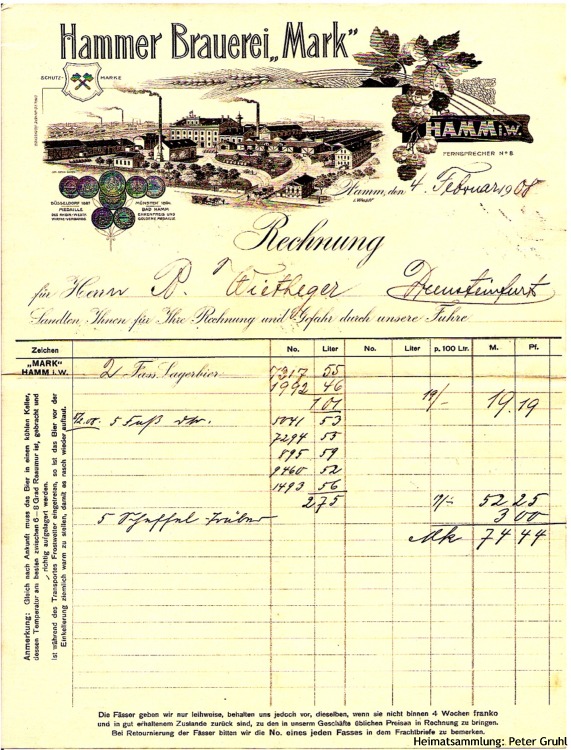 Hammer Brauerei „Mark"
SCHUTZ- MARKE
HAMM i.W.
FERNSPRECHER No 8.
DÜSSELDORF 1897 MEDAILLE
MÜNSTER 1894
BAD HAMM
EHRENPREIS UND GOLDENE MEDAILLE
Hamm, den 4. Februar 1908
i. Westf.
Rechnung
für Herrn B. Wietheger Drensteinfurt
Sandten Ihnen für Ihre Rechnung und Gefahr durch unsere Fuhre
Zeichen No. Liter No. Liter p. 100 Ltr. M. Pf.
„MARK"
HAMM i.W.
2 Fass Lagerbier 7317 55
1992 46
101 19/- 19.19
5 Faß 5041 53
7294 55
895 59
9460 52
1493 56
275 52 25
5 Scheffel Träber 3 00
Mk 74 44
Anmerkung: Gleich nach Ankunft muss das Bier in einen kühlen Keller,
dessen Temperatur am besten zwischen 6–8 Grad Reaumur ist, gebracht und
richtig aufgelagert werden.
Ist während des Transportes Frostwetter eingetreten, so ist das Bier vor der
Einkellerung ziemlich warm zu stellen, damit es rasch wieder auftaut.
Die Fässer geben wir nur leihweise, behalten uns jedoch vor, dieselben, wenn sie nicht binnen 4 Wochen franko
und in gut erhaltenem Zustande zurück sind, zu den in unserem Geschäfte üblichen Preisen in Rechnung zu bringen.
Bei Retournierung der Fässer bitten wir die No. eines jeden Fasses in dem Frachtbriefe zu bemerken.
Heimatsammlung: Peter Gruhl